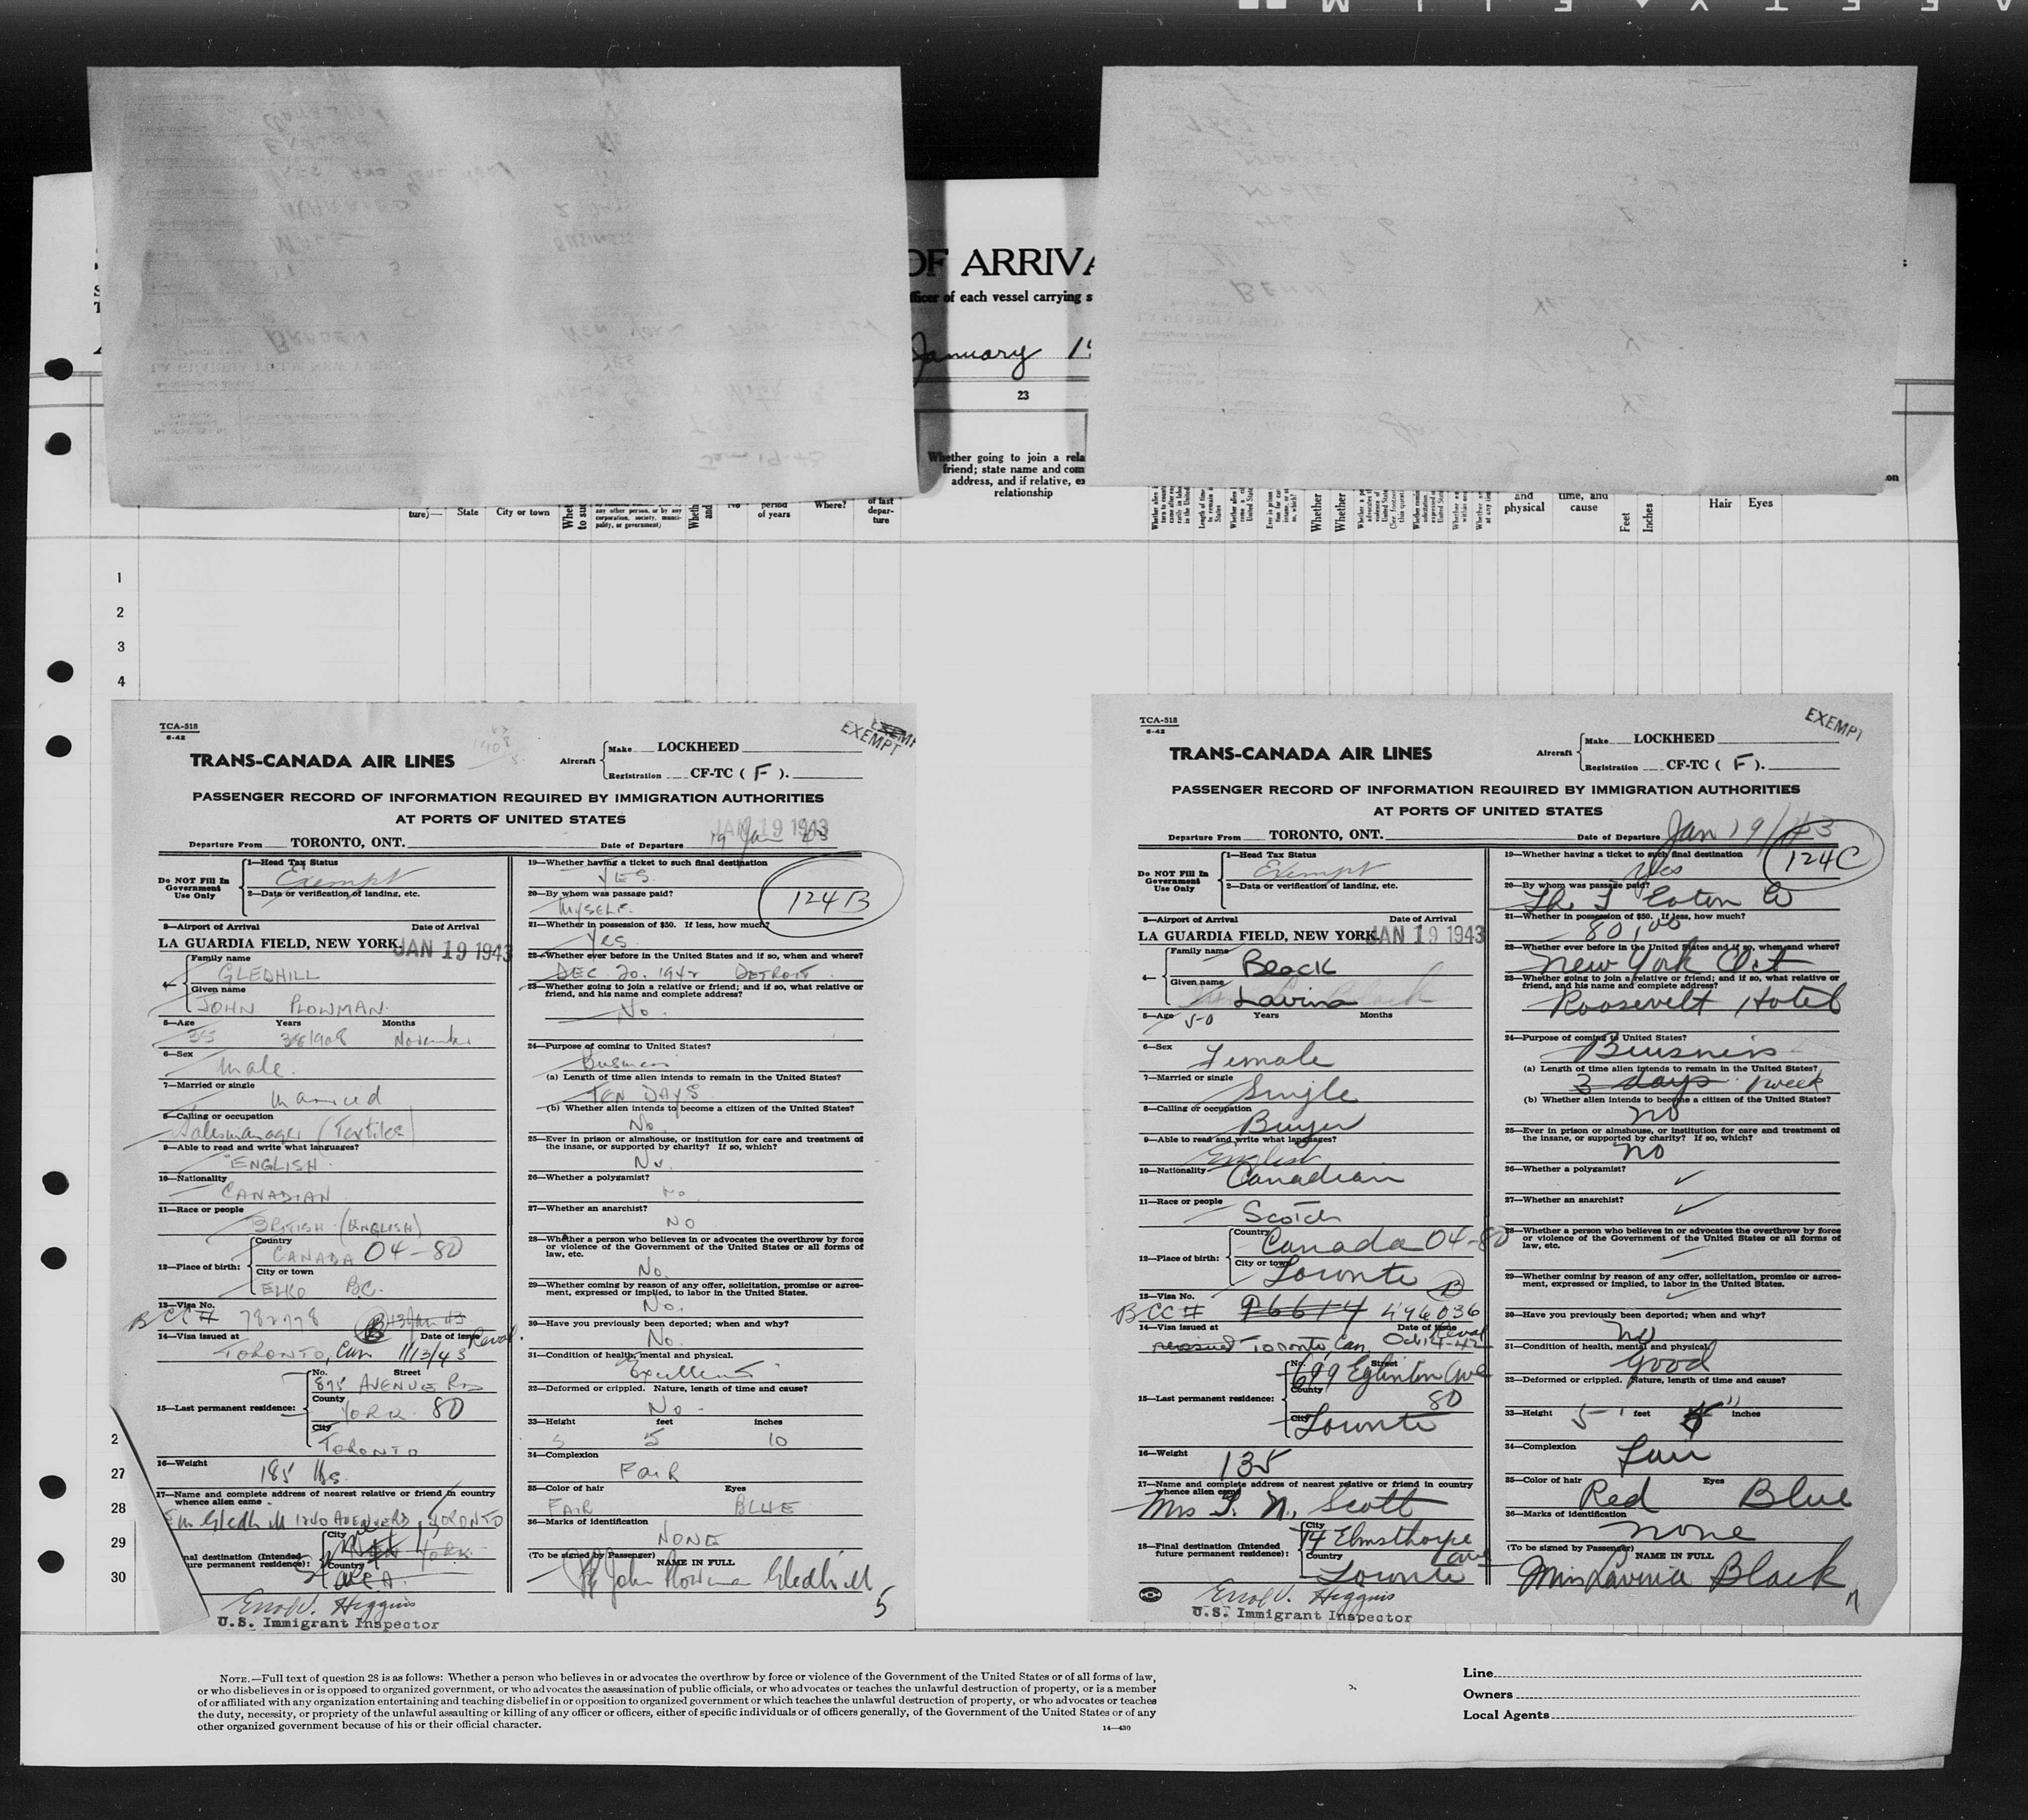 OF ARRIVA
officer of each vessel carrying s
January 19
23
Whether going to join a rela
friend; state name and com
address, and if relative, ex
relationship
ture)— State City or town
period of years
Where?
of last depar- ture
and physical
time, and cause
Feet
Inches
Hair Eyes
1
2
3
4
TCA-518
6-42
EXEMPT
TRANS-CANADA AIR LINES
Aircraft
Make LOCKHEED
Registration CF-TC ( F ).
PASSENGER RECORD OF INFORMATION REQUIRED BY IMMIGRATION AUTHORITIES
AT PORTS OF UNITED STATES
JAN 19 1943
Departure From TORONTO, ONT. Date of Departure 19 Jan 43
Do NOT Fill In Government Use Only
1—Head Tax Status
Exempt
2—Data or verification of landing, etc.
3—Airport of Arrival Date of Arrival
LA GUARDIA FIELD, NEW YORK. JAN 19 1943
4—
Family name
GLEDHILL
Given name
JOHN PLOWMAN.
5—Age Years Months
35 1908 November
6—Sex
Male.
7—Married or single
Married
8—Calling or occupation
Salesmanager (Textiles)
9—Able to read and write what languages?
ENGLISH.
10—Nationality
CANADIAN
11—Race or people
BRITISH (ENGLISH)
12—Place of birth:
Country
CANADA 04-80
City or town
ELKO BC.
13—Visa No.
BCC# 782778 B 13/Jan 43
14—Visa issued at Date of issue
TORONTO, Can 1/13/43 Reval.
15—Last permanent residence:
No. Street
895 AVENUE RD
County
YORK 80
City
TORONTO
16—Weight
185 lbs.
17—Name and complete address of nearest relative or friend in country
whence alien came
Gledhill 1240 AVENUE RD, TORONTO
nal destination (Intended
ure permanent residence):
City
NEW YORK
Country
Errol V. Higgins
U.S. Immigrant Inspector
19—Whether having a ticket to such final destination
YES.
124B
20—By whom was passage paid?
MYSELF.
21—Whether in possession of $50. If less, how much?
Yes
22—Whether ever before in the United States and if so, when and where?
DEC. 20. 1942 DETROIT.
23—Whether going to join a relative or friend; and if so, what relative or
friend, and his name and complete address?
No.
24—Purpose of coming to United States?
Business
(a) Length of time alien intends to remain in the United States?
TEN DAYS
(b) Whether alien intends to become a citizen of the United States?
No.
25—Ever in prison or almshouse, or institution for care and treatment of
the insane, or supported by charity? If so, which?
No.
26—Whether a polygamist?
No.
27—Whether an anarchist?
NO
28—Whether a person who believes in or advocates the overthrow by force
or violence of the Government of the United States or all forms of
law, etc.
No.
29—Whether coming by reason of any offer, solicitation, promise or agree-
ment, expressed or implied, to labor in the United States.
No.
30—Have you previously been deported; when and why?
No.
31—Condition of health, mental and physical.
Excellent
32—Deformed or crippled. Nature, length of time and cause?
No.
33—Height feet inches
5 10
34—Complexion
FAIR
35—Color of hair Eyes
FAIR BLUE
36—Marks of identification
NONE
(To be signed by Passenger) NAME IN FULL
John Plowman Gledhill
5
2
27
28
29
30
TCA-518
6-42
EXEMPT
TRANS-CANADA AIR LINES
Aircraft
Make LOCKHEED
Registration CF-TC ( F ).
PASSENGER RECORD OF INFORMATION REQUIRED BY IMMIGRATION AUTHORITIES
AT PORTS OF UNITED STATES
Departure From TORONTO, ONT. Date of Departure Jan 19/43
Do NOT Fill In Government Use Only
1—Head Tax Status
Exempt
2—Data or verification of landing, etc.
3—Airport of Arrival Date of Arrival
LA GUARDIA FIELD, NEW YORK. JAN 19 1943
4—
Family name
Black
Given name
Lavina
5—Age Years Months
50
6—Sex
Female
7—Married or single
Single
8—Calling or occupation
Buyer
9—Able to read and write what languages?
English
10—Nationality
Canadian
11—Race or people
Scotch
12—Place of birth:
Country
Canada 04-80
City or town
Toronto
13—Visa No. B
BCC# 96614 496036
14—Visa issued at Date of issue
reissued Toronto, Can. Oct 14-42 Reval
15—Last permanent residence:
No. Street
699 Eglinton Ave
County
80
City
Toronto
16—Weight
135
17—Name and complete address of nearest relative or friend in country
whence alien came
Mrs T. N. Scott
18—Final destination (Intended
future permanent residence):
City
14 Elmsthorpe Ave
Country
Toronto
Errol V. Higgins
U.S. Immigrant Inspector
19—Whether having a ticket to such final destination
Yes
124C
20—By whom was passage paid?
The T Eaton Co
21—Whether in possession of $50. If less, how much?
80.00
22—Whether ever before in the United States and if so, when and where?
New York Cit
23—Whether going to join a relative or friend; and if so, what relative or
friend, and his name and complete address?
Roosevelt Hotel
24—Purpose of coming to United States?
Business
(a) Length of time alien intends to remain in the United States?
3 days 1 week
(b) Whether alien intends to become a citizen of the United States?
no
25—Ever in prison or almshouse, or institution for care and treatment of
the insane, or supported by charity? If so, which?
no
26—Whether a polygamist?
27—Whether an anarchist?
28—Whether a person who believes in or advocates the overthrow by force
or violence of the Government of the United States or all forms of
law, etc.
29—Whether coming by reason of any offer, solicitation, promise or agree-
ment, expressed or implied, to labor in the United States.
30—Have you previously been deported; when and why?
no
31—Condition of health, mental and physical.
Good
32—Deformed or crippled. Nature, length of time and cause?
33—Height 5' feet inches
34—Complexion
Fair
35—Color of hair Eyes
Red Blue
36—Marks of identification
none
(To be signed by Passenger) NAME IN FULL
Miss Lavina Black
NOTE.—Full text of question 28 is as follows: Whether a person who believes in or advocates the overthrow by force or violence of the Government of the United States or of all forms of law,
or who disbelieves in or is opposed to organized government, or who advocates the assassination of public officials, or who advocates or teaches the unlawful destruction of property, or is a member
of or affiliated with any organization entertaining and teaching disbelief in or opposition to organized government or which teaches the unlawful destruction of property, or who advocates or teaches
the duty, necessity, or propriety of the unlawful assaulting or killing of any officer or officers, either of specific individuals or of officers generally, of the Government of the United States or of any
other organized government because of his or their official character.
14—430
Line
Owners
Local Agents